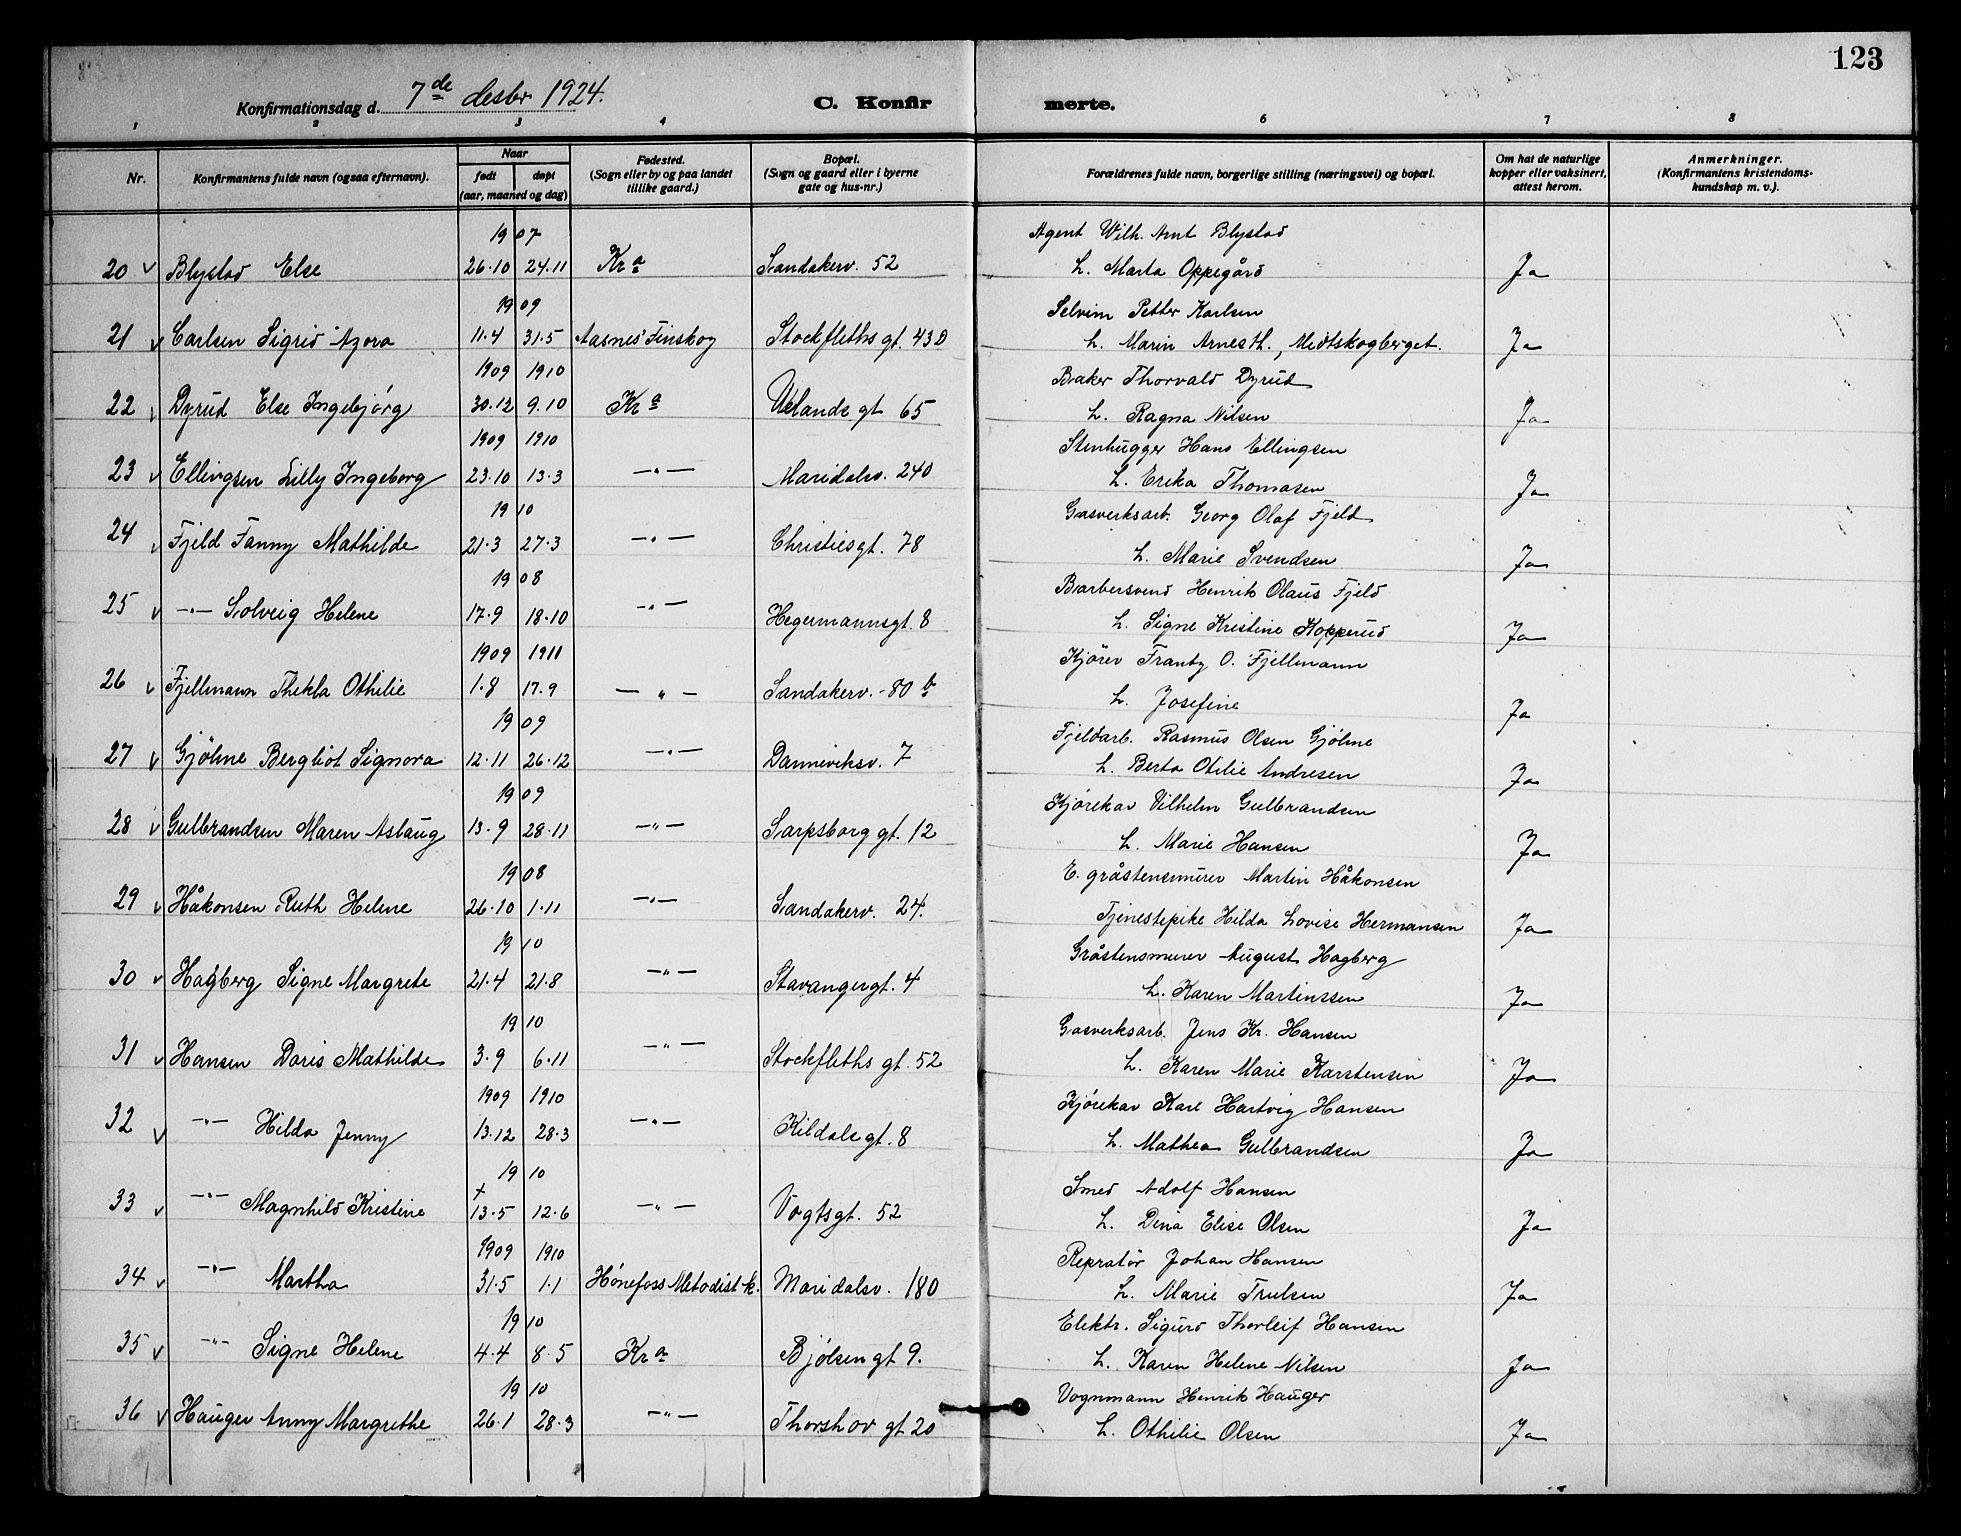 123
Konfirmationsdag d. 7de desbr 1924. C. Konfirmerte.
1 2 3 4 6 7 8
Nr. Konfirmantens fulde navn (ogsaa efternavn). Naar født døpt (aar, maaned og dag) Fødested. (Sogn eller by og paa landet tillike gaard.) Bopæl. (Sogn og gaard eller i byerne gate og hus-nr.) Forældrenes fulde navn, borgerlige stilling (næringsvei) og bopæl. Om hat de naturlige kopper eller vaksinert, attest herom. Anmerkninger. (Konfirmantens kristendomskundskap m. v.).
1907 Agent Wilh. Arnt Blystad
20 v Blystad Else 26.10 24.11 Kra Sandakerv. 52 h. Marta Oppegård Ja
1909 Selveier Petter Karlsen
21 v Carlsen Sigrid Azora 11.4 31.5 Aasnes Finskog Stockfleths gt. 43 D h. Marin Arnesth., Midtskogberget. Ja
1909 1910 Baker Thorvald Dyrud
22 v Dyrud Else Ingebjórg 30.12 9.10 Kra Uelands gt 65 h. Ragna Nilsen Ja
1909 1910 Stenhugger Hans Ellingsen
23 v Ellingsen Lilly Ingeborg 23.10 13.3 —"— Maridalsv. 240 h. Erika Thomasen Ja
1910 Gasverksarb. Georg Olaf Fjeld
24 v Fjeld Fanny Mathilde 21.3 27.3 —"— Christiesgt. 78 h. Marie Svendsen Ja
1908 Barbersvend Henrik Olaus Fjeld
25 v —"— Solveig Helene 17.9 18.10 —"— Hegermannsgt. 8 h. Signe Kristine Kopperud Ja
1909 1911 Kjörer Frantz O. Fjellmann
26 v Fjellmann Thekla Othilie 1.8 17.9 —"— Sandakerv. - 80 b h. Josefine Ja
1909 Fjeldarb. Rasmus Olsen Gjölme
27 v Gjölme Bergliot Signora 12.11 26.12 —"— Danneviksv. 7 h. Berta Otilie Andresen Ja
1909 Kjörekar Vilhelm Gulbrandsen
28 v Gulbrandsen Maren Aslaug 13.9 28.11 —"— Sarpsborg gt. 12 h. Marie Hansen Ja
1908 E. gråstensmurer Martin Håkonsen
29 v Håkonsen Ruth Helene 26.10 1.11 —"— Sandakerv. 24. Tjenestepike Hilda Lovise Hermansen Ja
1910 Gråstensmurer August Hagberg
30 v Hagberg Signe Margrete 21.4 21.8 —"— Stavangergt. 4 h. Karen Martinssen Ja
1910 Gasverksarb. Jens Kr. Hansen
31 v Hansen Doris Mathilde 3.9 6.11 —"— Stockfleths gt. 52 h. Karen Marie Karstensen Ja
1909 1910 Kjörekar Karl Hartvig Hansen
32 v —"— Hilda Jenny 13.12 28.3 —"— Kildals gt. 8 h. Mathea Gulbrandsen Ja
1910 Smed Adolf Hansen
33 v —"— Magnhild Kristine 13.5 12.6 —"— Vogtsgt. 52 h. Dina Elise Olsen Ja
1909 1910 Repratör Johan Hansen
34 v —"— Martha 31.5 1.1 Hónefoss Metodist k. Maridalsv. 180 h. Marie Trulsen Ja
1910 Elektr. Sigurd Thorleif Hansen
35 v —"— Signe Helene 4.4 8.5 Kra Bjölsengt 9. h. Karen Helene Nilsen Ja
1910 Vognmann Henrik Hauger
36 v Hauger Anny Margrethe 26.1 28.3 —"— Thorshov gt 20 h. Othilie Olsen Ja